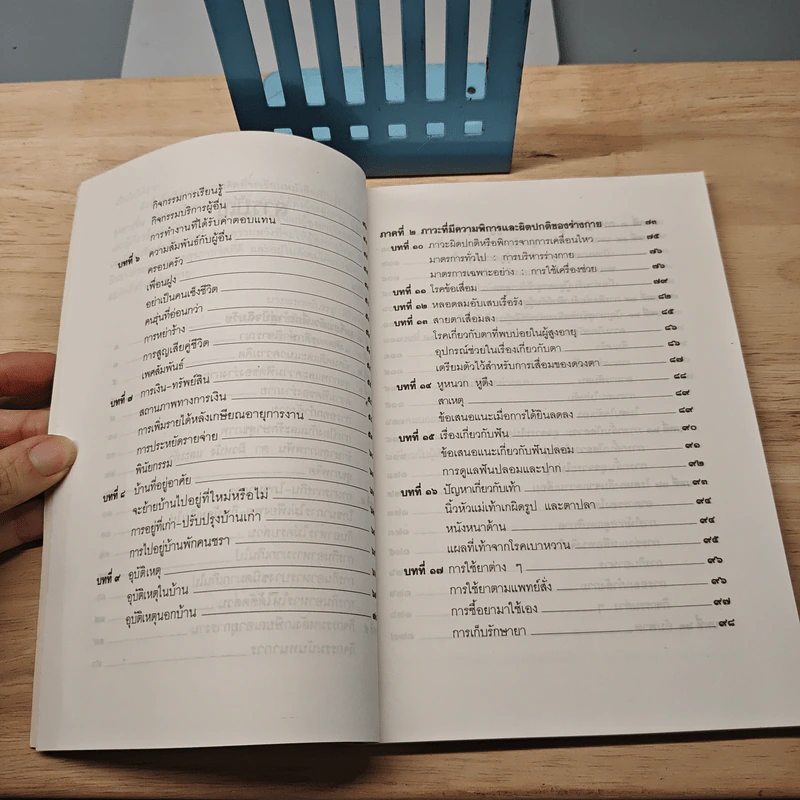 กิจกรรมการเรียนรู้
กิจกรรมบริการผู้อื่น
การทำงานที่ได้รับค่าตอบแทน
บทที่ ๖ ความสัมพันธ์กับผู้อื่น
ครอบครัว
เพื่อนฝูง
อย่าเป็นคนเซ็งชีวิต
คนรุ่นที่อ่อนกว่า
การหย่าร้าง
การสูญเสียคู่ชีวิต
เพศสัมพันธ์
บทที่ ๗ การเงิน-ทรัพย์สิน
สถานภาพทางการเงิน
การเพิ่มรายได้หลังเกษียณอายุการงาน
การประหยัดรายจ่าย
พินัยกรรม
บทที่ ๘ บ้านที่อยู่อาศัย
จะย้ายบ้านไปอยู่ที่ใหม่หรือไม่
การอยู่ที่เก่า-ปรับปรุงบ้านเก่า
การไปอยู่บ้านพักคนชรา
บทที่ ๙ อุบัติเหตุ
อุบัติเหตุในบ้าน
อุบัติเหตุนอกบ้าน
ภาคที่ ๒ ภาวะที่มีความพิการและผิดปกติของร่างกาย ๗๓
บทที่ ๑๐ ภาวะผิดปกติหรือพิการจากการเคลื่อนไหว ๗๕
มาตรการทั่วไป : การบริหารร่างกาย ๗๖
มาตรการเฉพาะอย่าง : การใช้เครื่องช่วย ๗๖
บทที่ ๑๑ โรคข้อเสื่อม ๗๙
บทที่ ๑๒ หลอดลมอักเสบเรื้อรัง ๘๒
บทที่ ๑๓ สายตาเสื่อมลง ๘๕
โรคเกี่ยวกับตาที่พบบ่อยในผู้สูงอายุ ๘๖
อุปกรณ์ช่วยในเรื่องเกี่ยวกับตา ๘๖
เตรียมตัวไว้สำหรับการเสื่อมของดวงตา ๘๗
บทที่ ๑๔ หูหนวก หูตึง ๘๘
สาเหตุ ๘๙
ข้อเสนอแนะเมื่อการได้ยินลดลง ๘๙
บทที่ ๑๕ เรื่องเกี่ยวกับฟัน ๙๐
ข้อเสนอแนะเกี่ยวกับฟันปลอม ๙๑
การดูแลฟันปลอมและปาก ๙๒
บทที่ ๑๖ ปัญหาเกี่ยวกับเท้า ๙๓
นิ้วหัวแม่เท้าเกผิดรูป และตาปลา ๙๔
หนังหนาด้าน ๙๔
แผลที่เท้าจากโรคเบาหวาน ๙๕
บทที่ ๑๗ การใช้ยาต่าง ๆ ๙๖
การใช้ยาตามแพทย์สั่ง ๙๖
การซื้อยามาใช้เอง ๙๗
การเก็บรักษายา ๙๘